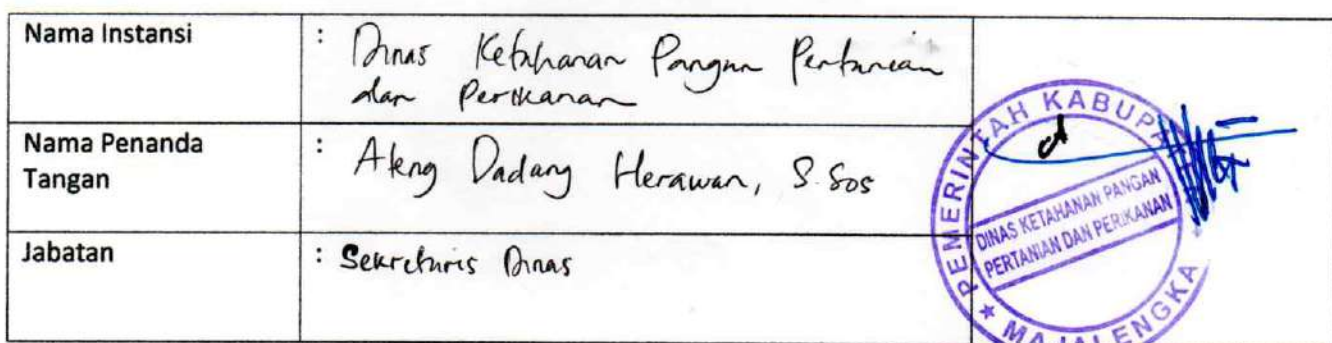 Nama Instansi : Dinas Ketahanan Pangan Pertanian
dan Perikanan
Nama Penanda : Ateng Dadang Herawan, S.Sos
Tangan
Jabatan : Sekretaris Dinas
PEMERINTAH KABUPA
DINAS KETAHANAN PANGAN
PERTANIAN DAN PERIKANAN
★ MAJALENGKA